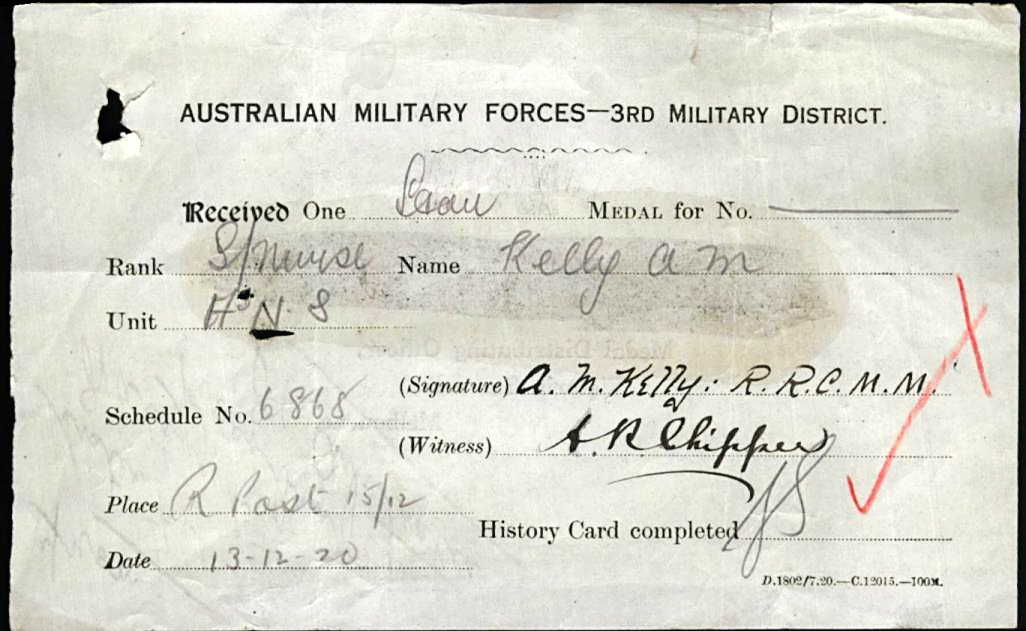 AUSTRALIAN MILITARY FORCES—3RD MILITARY DISTRICT.
Received One Star MEDAL for No.
Rank S/Nurse Name Kelly A M
Unit H N S
(Signature) A. M. Kelly: R. R. C. M. M.
Schedule No. 6868
(Witness) A. R Chipper
Place R Post 15/12
History Card completed
Date 13-12-20
D.1802/7.20.—C.12015.—100M.